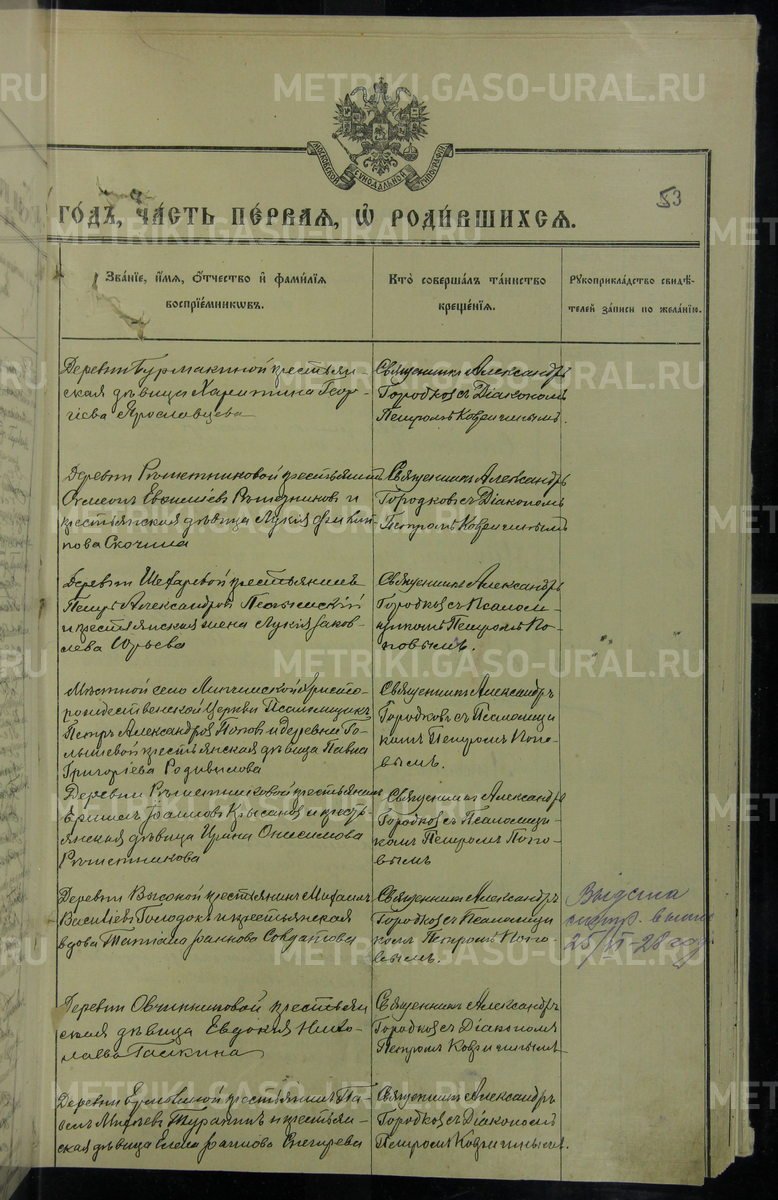 METRIKI.GASO-URAL.RU
МОСКОВСКОЙ СѴНОДАЛЬНОЙ ТИПОГРАФІИ
53
ГО́ДЪ, ЧА́СТЬ ПЕ́РВАЯ, Ѡ РОДИ́ВШИХСЯ.
Зва́нїе, и҆́мя, ѻ҆́тчество и҆ фамѝлїя
воспрїе́мникѡвъ.
Кто̀ соверша́лъ та́инство
креще́нїя.
Рꙋкоприкла́дство свидѣ́-
телей за́писи по жела́нїю.
Деревни Бурмакиной крестьян-
ская дѣвица Харитина Геор-
гіева Ярославцева
Священникъ Александръ
Городковъ съ Діакономъ
Петромъ
Деревни Рѣшетниковой
Евѳиміевъ и
крестьянская дѣвица Лукія
пова Скочина
Священникъ Александръ
Городковъ съ Діакономъ
Петромъ
Деревни крестьянинъ
Петръ Александровъ
и крестьянская жена Лукія Іаков-
лева Юрьева
Священникъ Александръ
Городковъ съ Псалом-
щикомъ Петромъ По-
повымъ.
Мѣстной села Христо-
рождественской Церкви Псаломщикъ
Петръ Александровъ Поповъ и деревни Го-
лышевой крестьянская дѣвица Павла
Григоріева Родивилова
Священникъ Александръ
Городковъ съ Псаломщи
комъ Петромъ Попо-
вымъ.
Деревни Рѣшетниковой крестьянинъ
Іоанновъ и кресть-
янская дѣвица Ирина Онисимова
Рѣшетникова
Священникъ Александръ
Городковъ съ Псаломщи-
комъ Петромъ Попо-
вымъ
Деревни Высокой крестьянинъ Михаилъ
Васильевъ Голодокъ и крестьянская
вдова Татіана Іоаннова Солдатова
Священникъ Александръ
Городковъ съ Псаломщи
комъ Петромъ Попо-
вымъ.
Выдана
25/VI-28 год
Деревни Овчинниковой крестьян
ская дѣвица Евдокія Нико-
лаева Галкина
Священникъ Александръ
Городковъ съ Діакономъ
Петромъ
Деревни крестьянинъ Па-
велъ и крестьян-
ская дѣвица Елена Снегирева
Священникъ Александръ
Городковъ съ Діакономъ
Петромъ